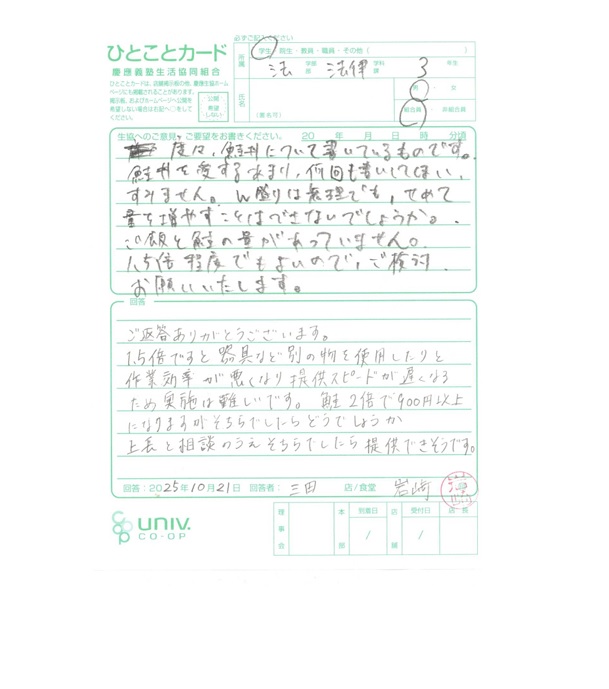 必ずご記入ください
ひとことカード
慶應義塾生活協同組合
ひとことカードは、店頭掲示板の他、慶應生協ホームページにも掲載されることがあります。
掲示板、およびホームページへ公開を希望しない場合は右記へ○をしてください。
公開希望しない
所属
学生 院生・教員・職員・その他(
法 学部 法律 学科 3 年生
氏名
(匿名可)
男・女
組合員・非組合員
生協へのご意見、ご要望をお書きください。 20 年 月 日 時 分頃
度々、鮭丼について書いているものです。
鮭丼を愛するあまり、何回も書いてしまい、
すみません。W盛りは無理でも、せめて
量を増やすことはできないでしょうか。
ご飯と鮭の量があっていません。
1.5倍程度でもよいので、ご検討
お願いいたします。
回答
ご返答ありがとうございます。
1.5倍ですと器具など別の物を使用したりと
作業効率が悪くなり提供スピードが遅くなる
ため実施は難しいです。 鮭2倍で900円以上
になりますがそちらでしたらどうでしょうか
上長と相談のうえそちらでしたら提供できそうです。
回答:2025年10月21日 回答者:三田 店/食堂 岩崎
UNIV.
CO-OP
理事会
本部
到着日
/
店舗
受付日
/
店長